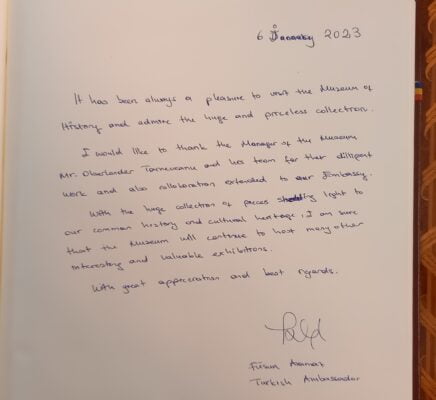 6 January 2023
It has been always a pleasure to visit the Museum of
History and admire the huge and priceless collection.
I would like to thank the Manager of the Museum
Mr. Oberländer Tarnoveanu and his team for their diligent
work and also collaboration extended to our Embassy.
With the huge collection of pieces shedding light to
our common history and cultural heritage, I am sure
that the Museum will continue to host many other
interesting and valuable exhibitions.
With great appreciation and best regards.
Füsun Aramaz
Turkish Ambassador